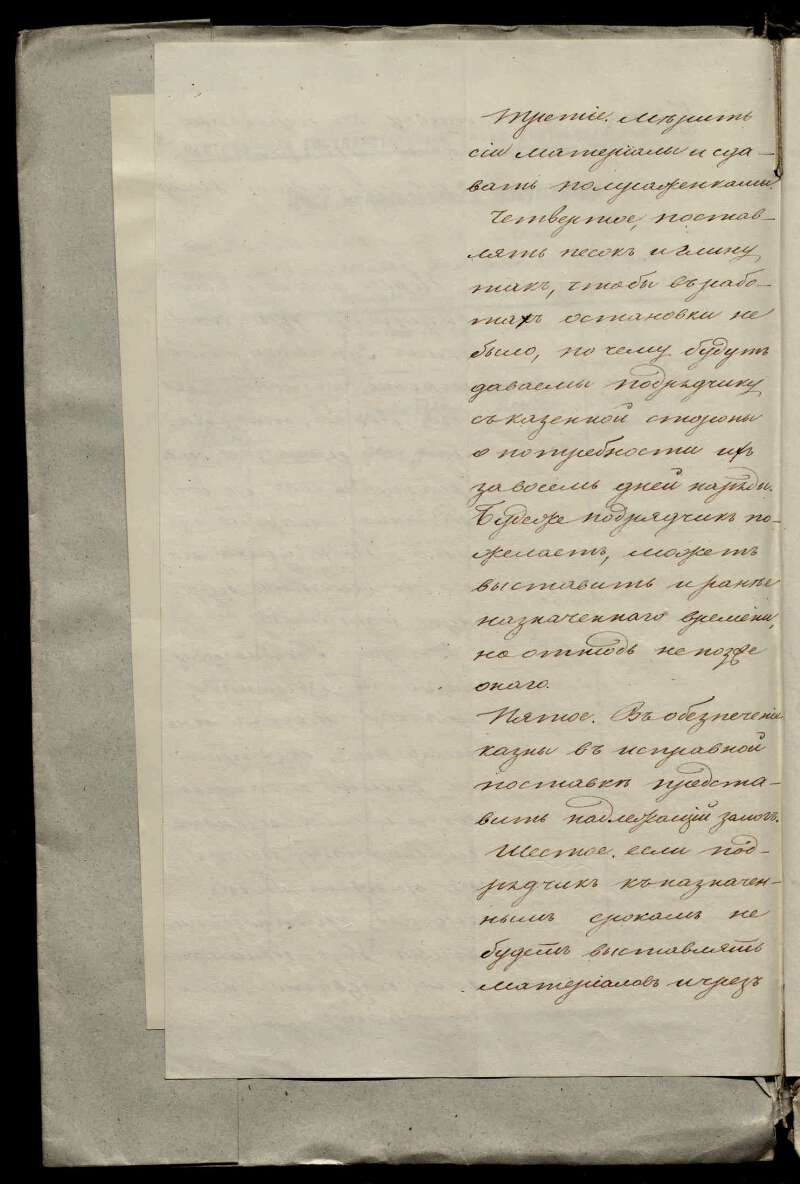 Третіе. Мѣрить
сіи матеріалы и сда-
вать полусаженками.
Четвертое, постав-
лять песокъ и глину
такъ, чтобы въ рабо-
тахъ остановки не
было, по чему будутъ
даваемы подрядчику
съ казенной стороны
о потребности ихъ
за восемь дней наряды.
Буде же подрядчикъ по-
желаетъ, можетъ
выставить и ранѣе
назначеннаго времени,
но отнюдь не позже
онаго.
Пятое. Въ обезпеченіи
казны въ исправной
поставкѣ предста-
вить надлежащій залогъ.
Шестое. если под-
рядчикъ къ назначен-
нымъ срокамъ не
будетъ выставлять
матеріаловъ и чрезъ